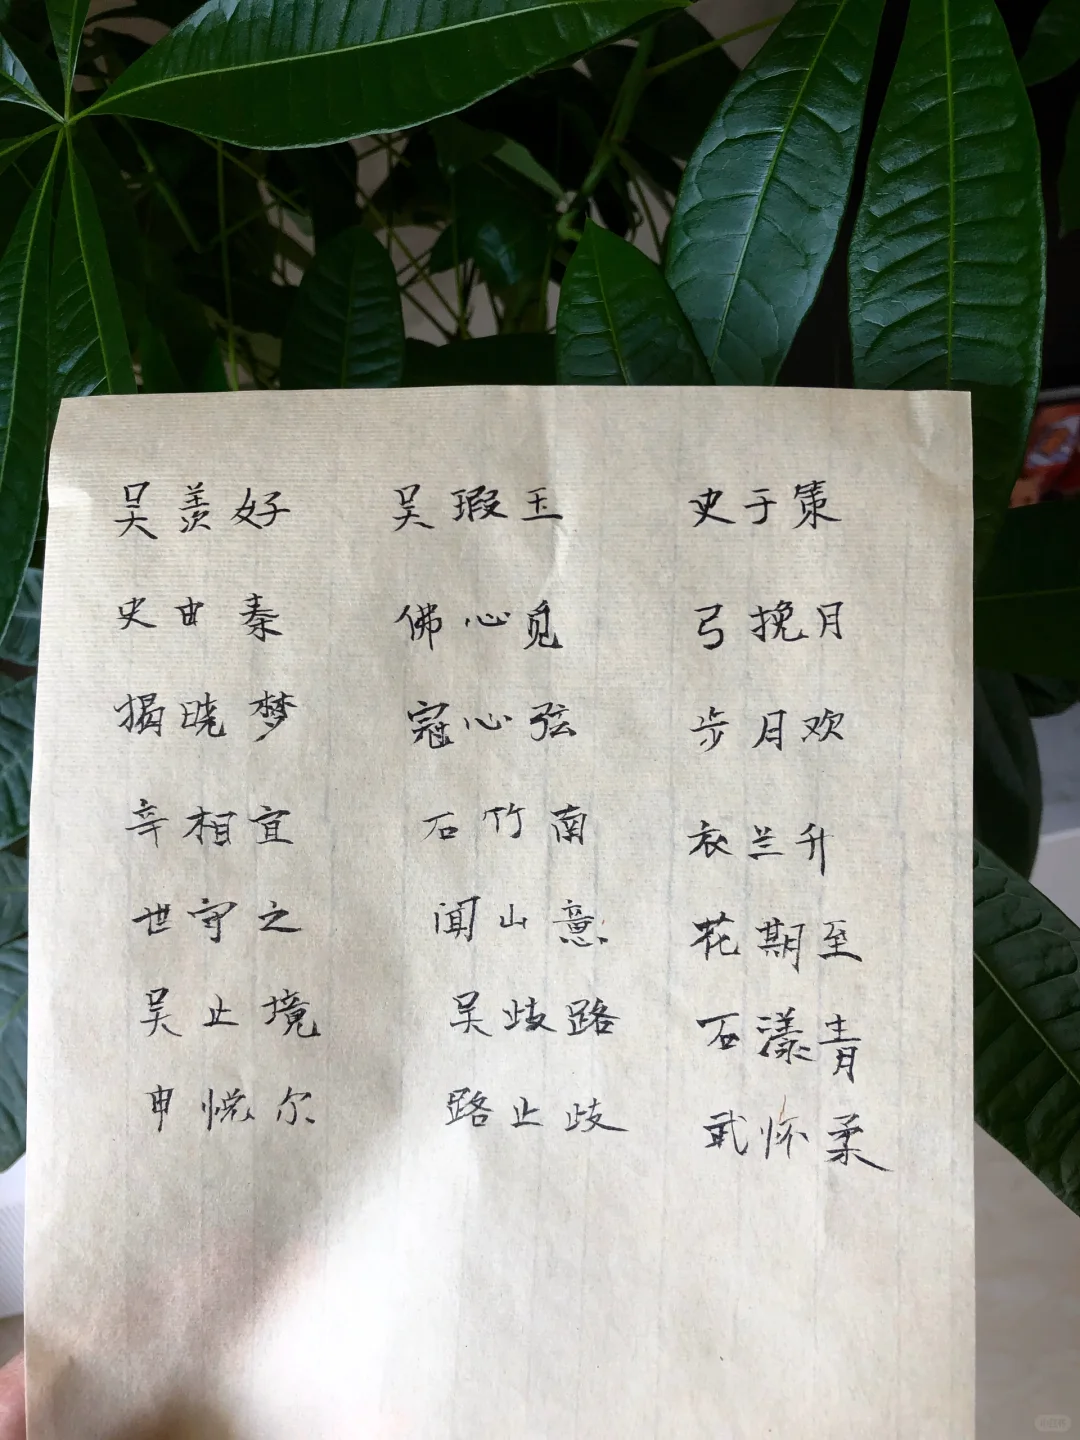 吴羡好 吴瑕玉 史于策
史由秦 佛心觅 弓挽月
揭晓梦 冠心弦 步月欢
辛相宜 石竹南 衣兰升
世守之 闻山意 花期至
吴止境 吴歧路 石漾青
申悦尔 路止歧 武怀柔
小红书